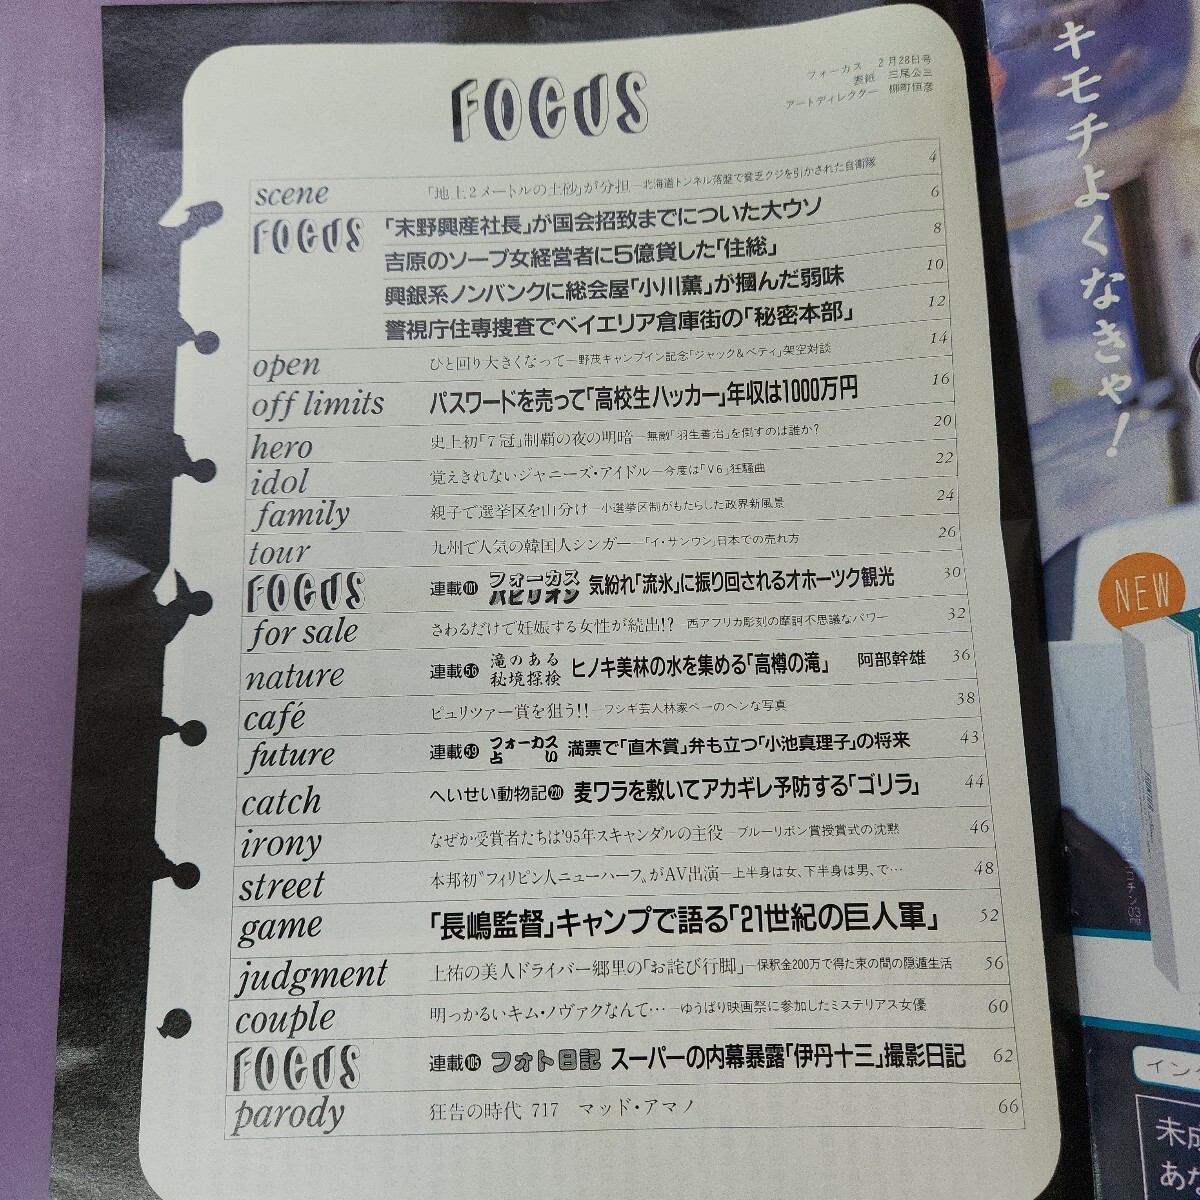 FOCUS
フォーカス 2月28日号
表紙 三尾公三
アートディレクター 柳町恒彦
scene 「地上2メートルの土砂」が分担―北海道トンネル落盤で貧乏クジを引かされた自衛隊 4
FOCUS 「末野興産社長」が国会招致までについた大ウソ 6
吉原のソープ女経営者に5億貸した「住総」 8
興銀系ノンバンクに総会屋「小川薫」が摑んだ弱味 10
警視庁住専捜査でベイエリア倉庫街の「秘密本部」 12
open ひと回り大きくなって―野茂キャンプイン記念「ジャック&ベティ」架空対談 14
off limits パスワードを売って「高校生ハッカー」年収は1000万円 16
hero 史上初「7冠」制覇の夜の明暗―無敵「羽生善治」を倒すのは誰か? 20
idol 覚えきれないジャニーズ・アイドル―今度は「V6」狂騒曲 22
family 親子で選挙区を山分け―小選挙区制がもたらした政界新風景 24
tour 九州で人気の韓国人シンガー―「イ・サンウン」日本での売れ方 26
FOCUS 連載101 フォーカスパビリオン 気紛れ「流氷」に振り回されるオホーツク観光 30
for sale さわるだけで妊娠する女性が続出!? 西アフリカ彫刻の摩訶不思議なパワー 32
nature 連載56 滝のある秘境探検 ヒノキ美林の水を集める「高樽の滝」 阿部幹雄 36
café ピュリツァー賞を狙う!!―フシギ芸人林家ペーのヘンな写真 38
future 連載59 フォーカス占い 満票で「直木賞」弁も立つ「小池真理子」の将来 43
catch へいせい動物記220 麦ワラを敷いてアカギレ予防する「ゴリラ」 44
irony なぜか受賞者たちは'95年スキャンダルの主役―ブルーリボン賞授賞式の沈黙 46
street 本邦初〝フィリピン人ニューハーフ〟がAV出演―上半身は女、下半身は男、で… 48
game 「長嶋監督」キャンプで語る「21世紀の巨人軍」 52
judgment 上祐の美人ドライバー郷里の「お詫び行脚」―保釈金200万で得た束の間の隠遁生活 56
couple 明っかるいキム・ノヴァクなんて…―ゆうばり映画祭に参加したミステリアス女優 60
FOCUS 連載105 フォト日記 スーパーの内幕暴露「伊丹十三」撮影日記 62
parody 狂告の時代 717 マッド・アマノ 66
キモチよくなきゃ!
NEW